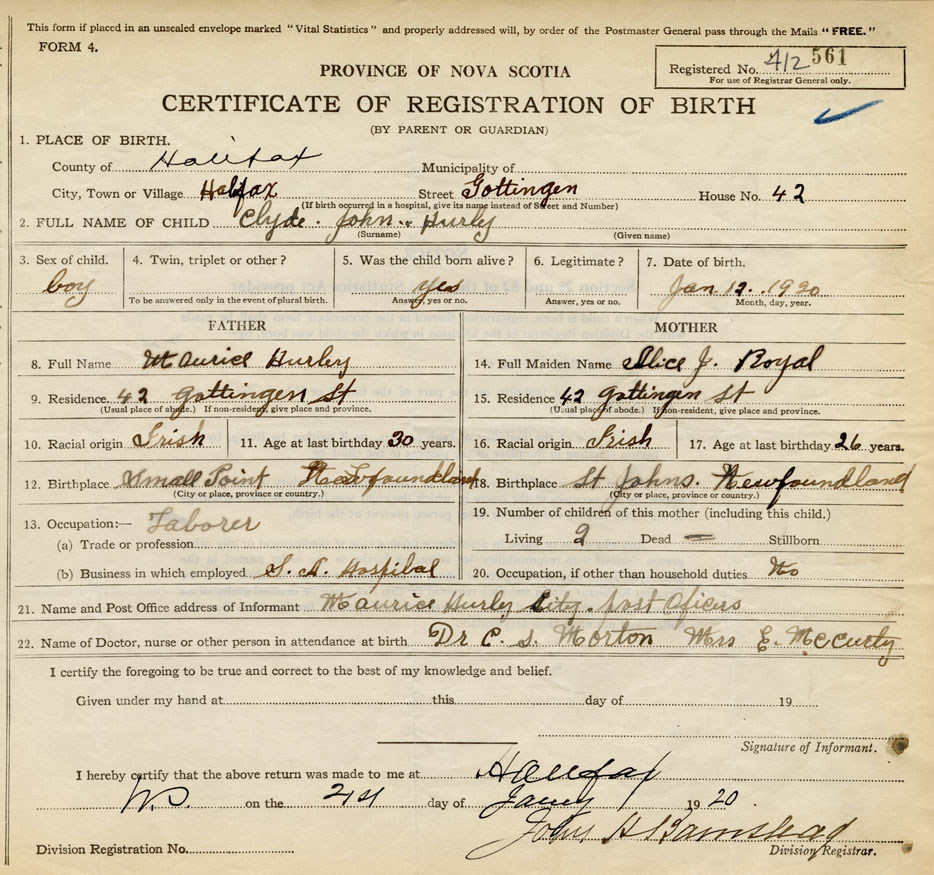 This form if placed in an unsealed envelope marked "Vital Statistics" and properly addressed will, by order of the Postmaster General pass through the Mails "FREE."
FORM 4.
Registered No. 412 561
For use of Registrar General only.
PROVINCE OF NOVA SCOTIA
CERTIFICATE OF REGISTRATION OF BIRTH
(BY PARENT OR GUARDIAN)
1. PLACE OF BIRTH.
County of Halifax Municipality of
City, Town or Village Halifax Street Gottingen House No. 42
(If birth occurred in a hospital, give its name instead of Street and Number)
2. FULL NAME OF CHILD Clyde John Hurley
(Surname) (Given name)
3. Sex of child. 4. Twin, triplet or other? 5. Was the child born alive? 6. Legitimate? 7. Date of birth.
boy yes Jan 12. 1920
To be answered only in the event of plural birth. Answer, yes or no. Answer, yes or no. Month, day, year.
FATHER MOTHER
8. Full Name Maurice Hurley 14. Full Maiden Name Alice J. Royal
9. Residence. 42 Gottingen St 15. Residence 42 Gottingen St
(Usual place of abode.) If non-resident, give place and province. (Usual place of abode.) If non-resident, give place and province.
10. Racial origin Irish 11. Age at last birthday 30 years. 16. Racial origin Irish 17. Age at last birthday 26 years.
12. Birthplace Small Point Newfoundland 18. Birthplace St Johns. Newfoundland
(City or place, province or country.) (City or place, province or country.)
13. Occupation:— Laborer 19. Number of children of this mother (including this child.)
(a) Trade or profession Living 2 Dead — Stillborn
(b) Business in which employed S. A. Hospital 20. Occupation, if other than household duties No
21. Name and Post Office address of Informant Maurice Hurley City. post Oficers
22. Name of Doctor, nurse or other person in attendance at birth Dr C. S. Morton Mrs E. McCurty
I certify the foregoing to be true and correct to the best of my knowledge and belief.
Given under my hand at this day of 19
Signature of Informant.
I hereby certify that the above return was made to me at Halifax
N.S. on the 21st day of Jany 1920
John H Barnstead
Division Registration No. Division Registrar.